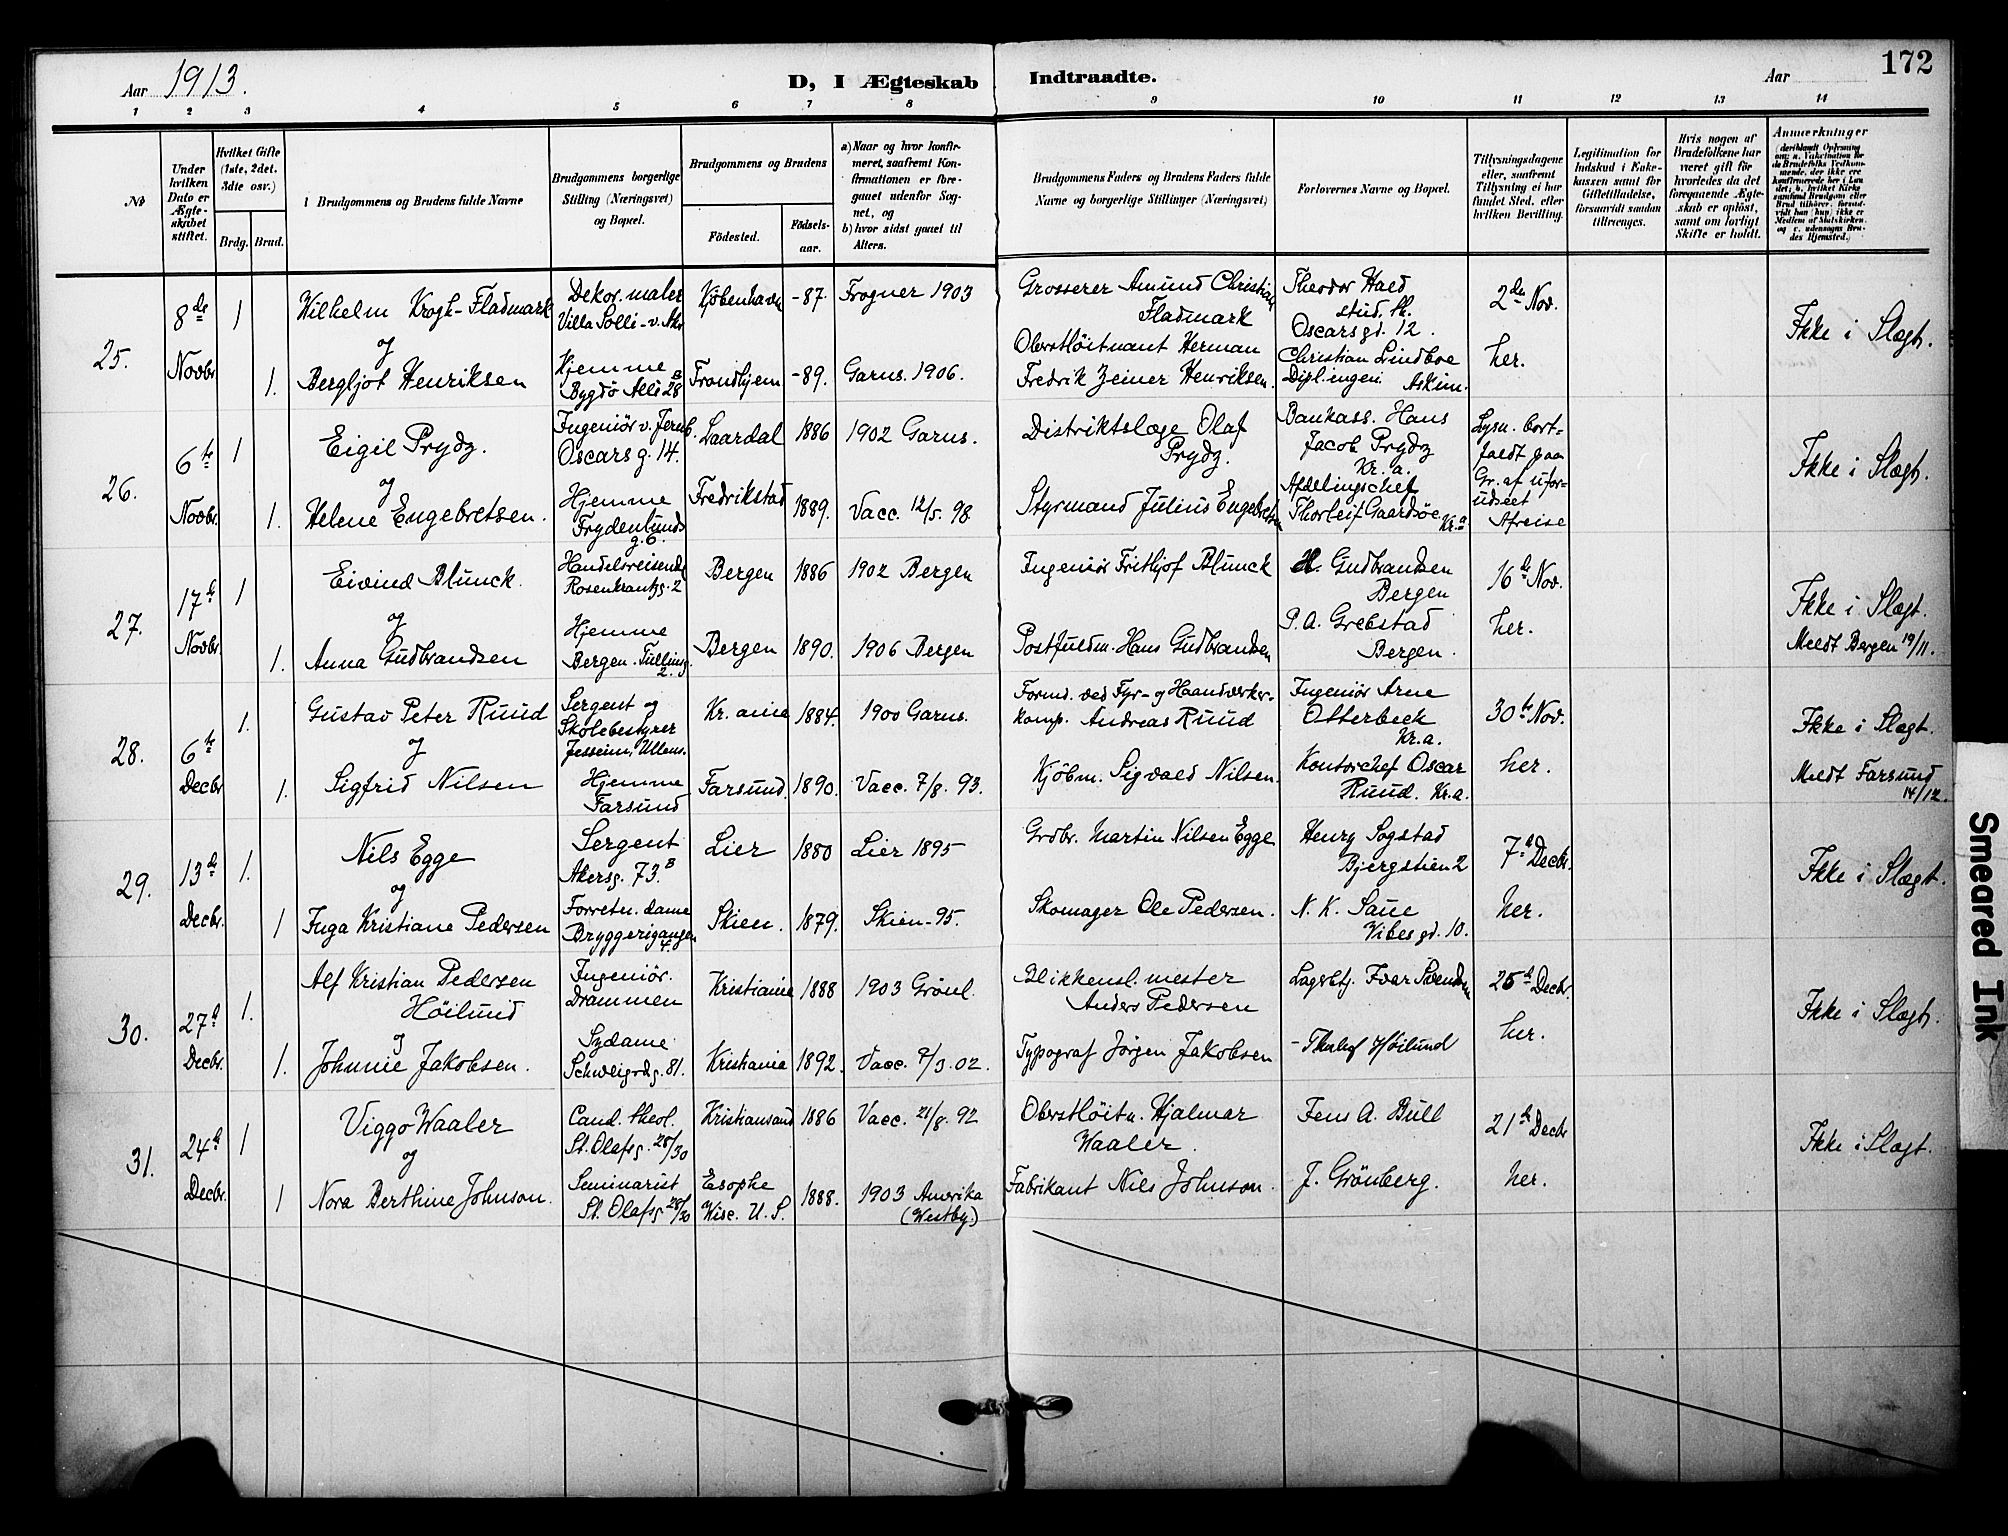 Aar 1913.
D, I Ægteskab Indtraadte.
Aar
172
1 2 3 4 5 6 7 8 9 10 11 12 13 14
No
Under hvilken Dato er Ægteskabet stiftet.
Hvilket Gifte (1ste, 2det, 3die osv.)
Brdg. Brud.
Brudgommens og Brudens fulde Navne
Brudgommens borgerlige Stilling (Næringsvei) og Bopæl.
Brudgommens og Brudens
Fødested. Fødselsaar.
a) Naar og hvor konfirmeret, saafremt Konfirmationen er foregaaet udenfor Sognet, og
b) hvor sidst gaaet til Alters.
Brudgommens Faders og Brudens Faders fulde Navne og borgerlige Stillinger (Næringsvei)
Forlovernes Navne og Bopæl.
Tillysningsdagene eller, saafremt Tillysning ei har fundet Sted, efter hvilken Bevilling.
Legitimation for Indskud i Enkekassen samt for Giftetilladelse, forsaavidt saadan tiltrænges.
Hvis nogen af Brudefolkene har været gift før hvorledes da det foregaaende Ægteskab er opløst, samt om lovligt Skifte er holdt.
Anmærkninger
25. 8de Novbr 1 Wilhelm Krogh-Fladmark Dekor. maler Villa Solli - v. Akr Kjøbenhavn -87. Frogner 1903 Grosserer Amund Christian Fladmark Theodor Hoed stud. th. Oscarsgd. 12. 2den Nov. Ikke i Slægt.
og
1. Bergljot Henriksen Hjemme Bygdö Allé 28 B Trondhjem -89. Garns. 1906. Oberstlöitnant Herman Fredrik Zeiner Henriksen. Christian Lindboe Dipl. ingeni. Askim. her.
26. 6te Novbr. 1 Eigil Prydz. Ingeniör v. Jernb. Oscarsg. 14. Laardal 1886 1902 Garns. Distriktslæge Olaf Prydz. Bankass. Hans Jacob Prydz Kr.a. Lysn. bortfaldt paa Gr. af uforudseet Afreise Ikke i Slægt.
og
1. Helene Engebretsen. Hjemme Frydenlunds g. 6. Fredrikstad 1889. Vacc. 12/5. 98. Styrmand Julius Engebretsen Afdelingschef Thorleif Gaardsöe. Kr.a
27. 17de Novbr 1 Eivind Blunck. Handelsreisende Rosenkrantzg. 2 Bergen 1886 1902 Bergen Ingeniör Frithjof Blunck H. Gudbrandsen Bergen 16de Nov. Ikke i Slægt.
og
1. Anna Gudbrandsen Hjemme Bergen. Tullinsg 2. Bergen 1890. 1906 Bergen Postfuldm. Hans Gudbrandsen P. A. Grebstad Bergen. her. Meldt Bergen 19/11.
28. 6te Decbr 1. Gustav Peter Ruud Sergent og Skolebestyrer Jesseim, Ullens. Kr.ania 1884. 1900 Garns. Formd. ved Fyr- og Haandverkerkomp. Andreas Ruud Ingeniör Arne Otterbeck Kr.a. 30te Nov. Ikke i Slægt.
og
1. Sigfrid Nilsen Hjemme Farsund Farsund. 1890. Vacc. 7/8. 93. Kjöbm. Sigvald Nilsen. Kontorchef Oscar Ruud. Kr.a. her. Meldt Farsund 14/12.
29. 13de Decbr. 1. Nils Egge Sergent Akersg. 73.B Lier 1880 Lier 1895 Grdbr. Martin Nilsen Egge Henry Sogstad Bjergstien 2 7de Decbr. Ikke i Slægt.
og
1 Inga Kristiane Pedersen Forretn. dame Bryggerigangen 4. Skien. 1879. Skien -95. Skomager Ole Pedersen. N. K. Saue Vibesgd. 10. her.
30. 27de Decbr. 1. Alf Kristian Pedersen Höilund Ingeniör. Drammen Kristiania 1888 1903 Grönl. Blikkensl. mester Anders Pedersen Lagerbtj. Ivar Svendsen 25de Decbr. Ikke i Slægt.
og
1. Johnnie Jakobsen. Sydame Schweigrdg. 81. Kristiania 1892. Vacc. 7/3. 02. Typograf Jörgen Jakobsen - Höilund her.
31. 24de Decbr. 1 Viggo Waaler Cand. theol. St. Olafsg. 28/30 Kristiansand 1886 Vacc. 21/8. 92 Oberstlöitn. Hjalmar Waaler. Jens A. Bull 21de Decbr Ikke i Slægt.
og
1 Nora Berthine Johnson. Seminarist St. Olafsg 28/30 Esophe Wisc. U. S. 1888. 1903 Amerika (Westby) Fabrikant Nils Johnson. J. Grönberg. her.
Smeared Ink